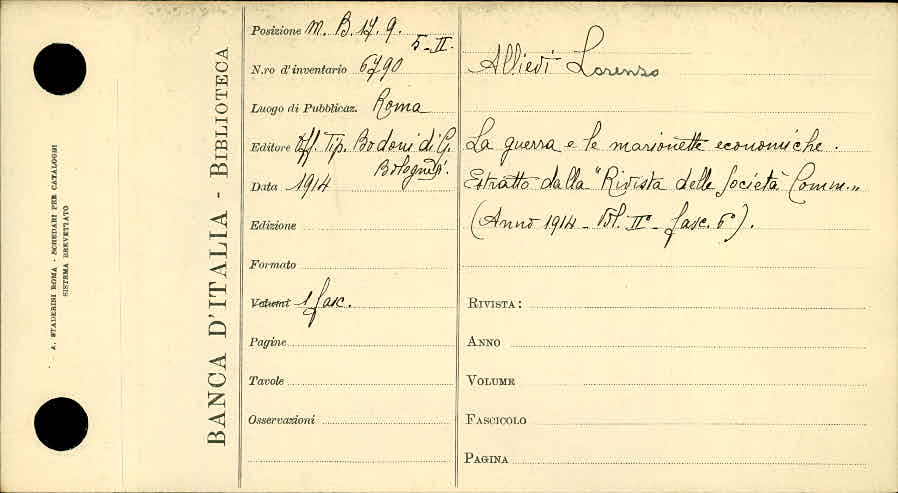 A. STADERINI ROMA - SCHEDARI PER CATALOGHI
SISTEMA BREVETTATO
BANCA D'ITALIA - BIBLIOTECA
Posizione M. B. 17. 9.
5-II.
N.ro d'inventario 6790
Luogo di Pubblicaz. Roma
Editore Off. Tip. Bodoni di G.
Bolognesi.
Data 1914
Edizione
Formato
Volumi 1 fasc.
Pagine
Tavole
Osservazioni
Allievi Lorenzo
La guerra e le marionette economiche.
Estratto dalla "Rivista delle Società Comm.„
(Anno 1914 - Vol. II° - fasc. 6°).
RIVISTA:
ANNO
VOLUME
FASCICOLO
PAGINA